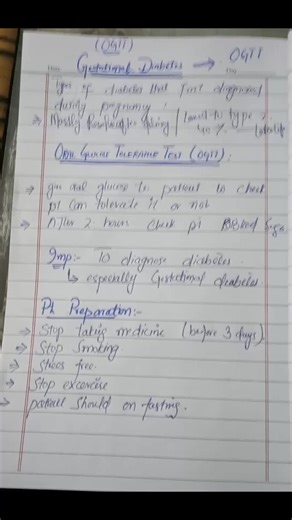 (OGTT)
Gestational Diabetes → OGTT
Type of diabetes that first diagnosed
during pregnancy.
→ Mostly Resolve after giving / lead to type 2
40%
ORAL GLUCOSE TOLERANCE TEST (OGTT):
→ give oral glucose to patient to check
pt can tolerate it or not
→ After 2 hours check pt Blood Sugar
Imp:- To diagnose diabetes.
↳ especially Gestational diabetes
Pt Preparation:-
→ Stop taking medicine (before 3 days)
→ Stop Smoking
→ Stress free.
→ Stop excercise
→ patient should on fasting.